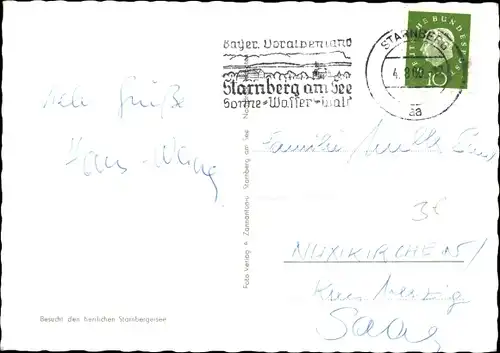 Bayer. Voralpenland
Starnberg am See
Sonne-Wasser-Wald
STARNBERG
4. 8. 60
aa
DEUTSCHE BUNDESPOST
10
viele Grüße
Hans
Foto Verlag A. Zannantonio Starnberg am See
Familie
38
NUNKIRCHEN /
Kreis Merzig
Saar
Besucht den herrlichen Starnbergersee